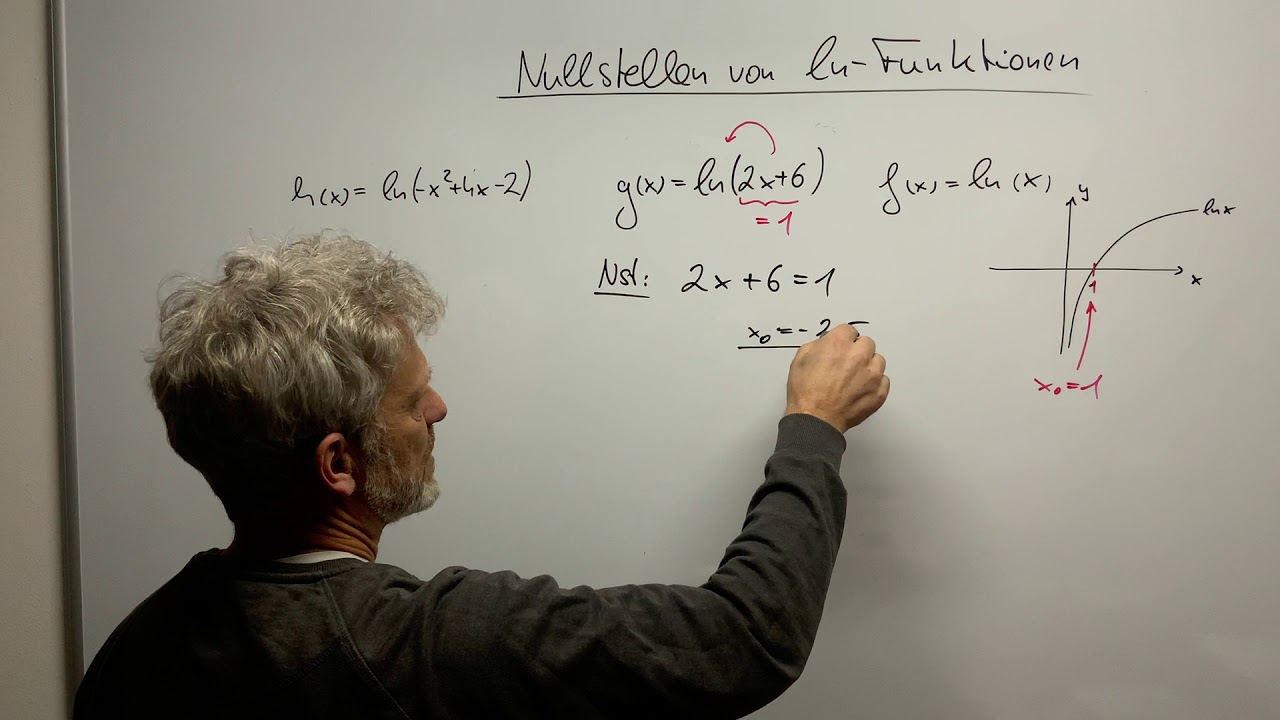 Nullstellen von ln-Funktionen
h(x) = ln(-x²+4x-2)
g(x) = ln(2x+6)
= 1
f(x) = ln(x)
Nst: 2x+6=1
x₀ = -2
y
ln x
x
1
x₀=1